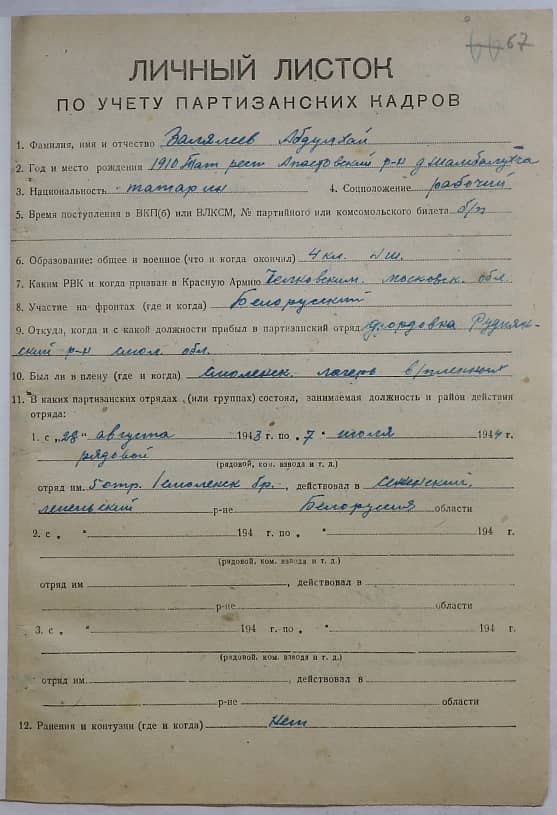 67
ЛИЧНЫЙ ЛИСТОК
ПО УЧЕТУ ПАРТИЗАНСКИХ КАДРОВ
1. Фамилия, имя и отчество Валялеев Абдулхай
2. Год и место рождения 1910 Тат. респ. Апастовский р-н д.
3. Национальность татарин 4. Соцположение рабочий
5. Время поступления в ВКП(б) или ВЛКСМ, № партийного или комсомольского билета б/п
6. Образование: общее и военное (что и когда окончил) 4 кл.
7. Каким РВК и когда призван в Красную Армию московск. обл.
8. Участие на фронтах (где и когда) Белорусский
9. Откуда, когда и с какой должности прибыл в партизанский отряд Руднян-
ский р-н смол. обл.
10. Был ли в плену (где и когда) Смоленск. лагерь в/пленных
11. В каких партизанских отрядах (или группах) состоял, занимаемая должность и район действия
отряда:
1. с „28" августа 1943 г. по „7" июля 1944 г.
рядовой
(рядовой, ком. взвода и т. д.)
отряд им. 5 отр. Смоленск бр., действовал в Сененский,
лепельский р-не Белоруссия области
2. с „ " 194 г. по „ " 194 г.
(рядовой, ком. взвода и т. д.)
отряд им , действовал в
р-не области
3. с „ " 194 г. по „ " 194 г.
(рядовой, ком. взвода и т. д.)
отряд им. , действовал в
р-не области
12. Ранения и контузии (где и когда) Нет